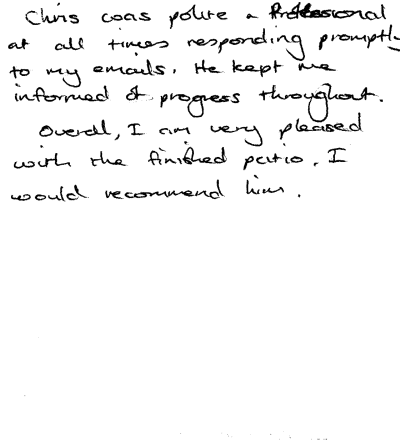 Chris was polite & Professional
at all times responding promptly
to my emails. He kept me
informed of progress throughout.
Overall, I am very pleased
with the finished patio. I
would recommend him.